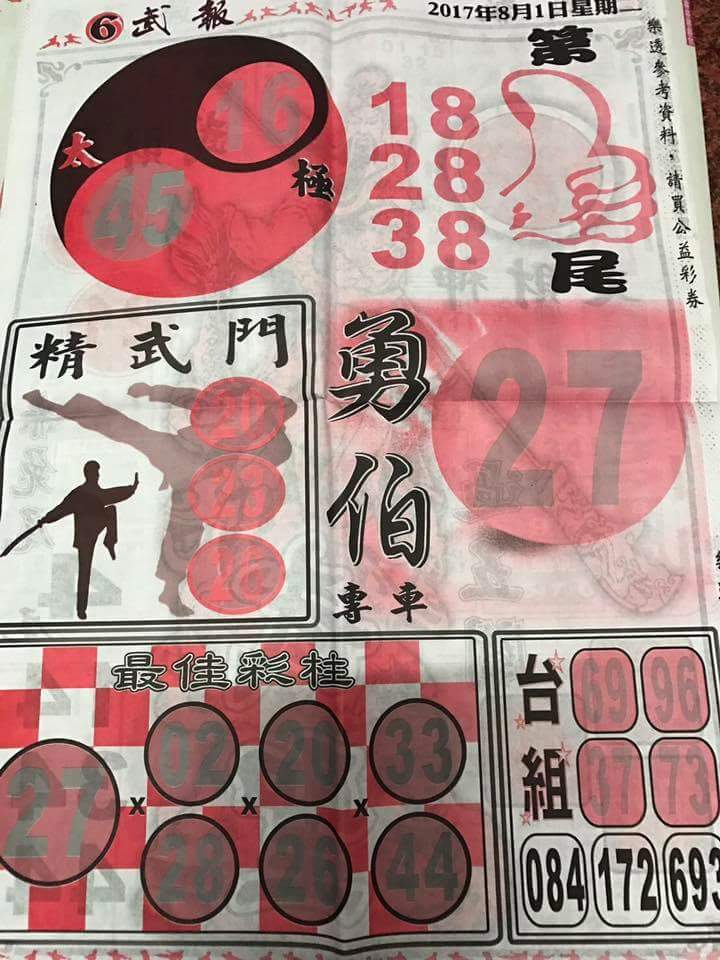 6 武報
2017年8月1日星期二
樂透參考資料,請買公益彩券
太極
16
45
第尾
18
28
38
精武門
20
26
勇伯
專車
27
最佳彩柱
27 x 02 x 20 x 33
28 26 44
台組
69 96
37 73
084 172 693